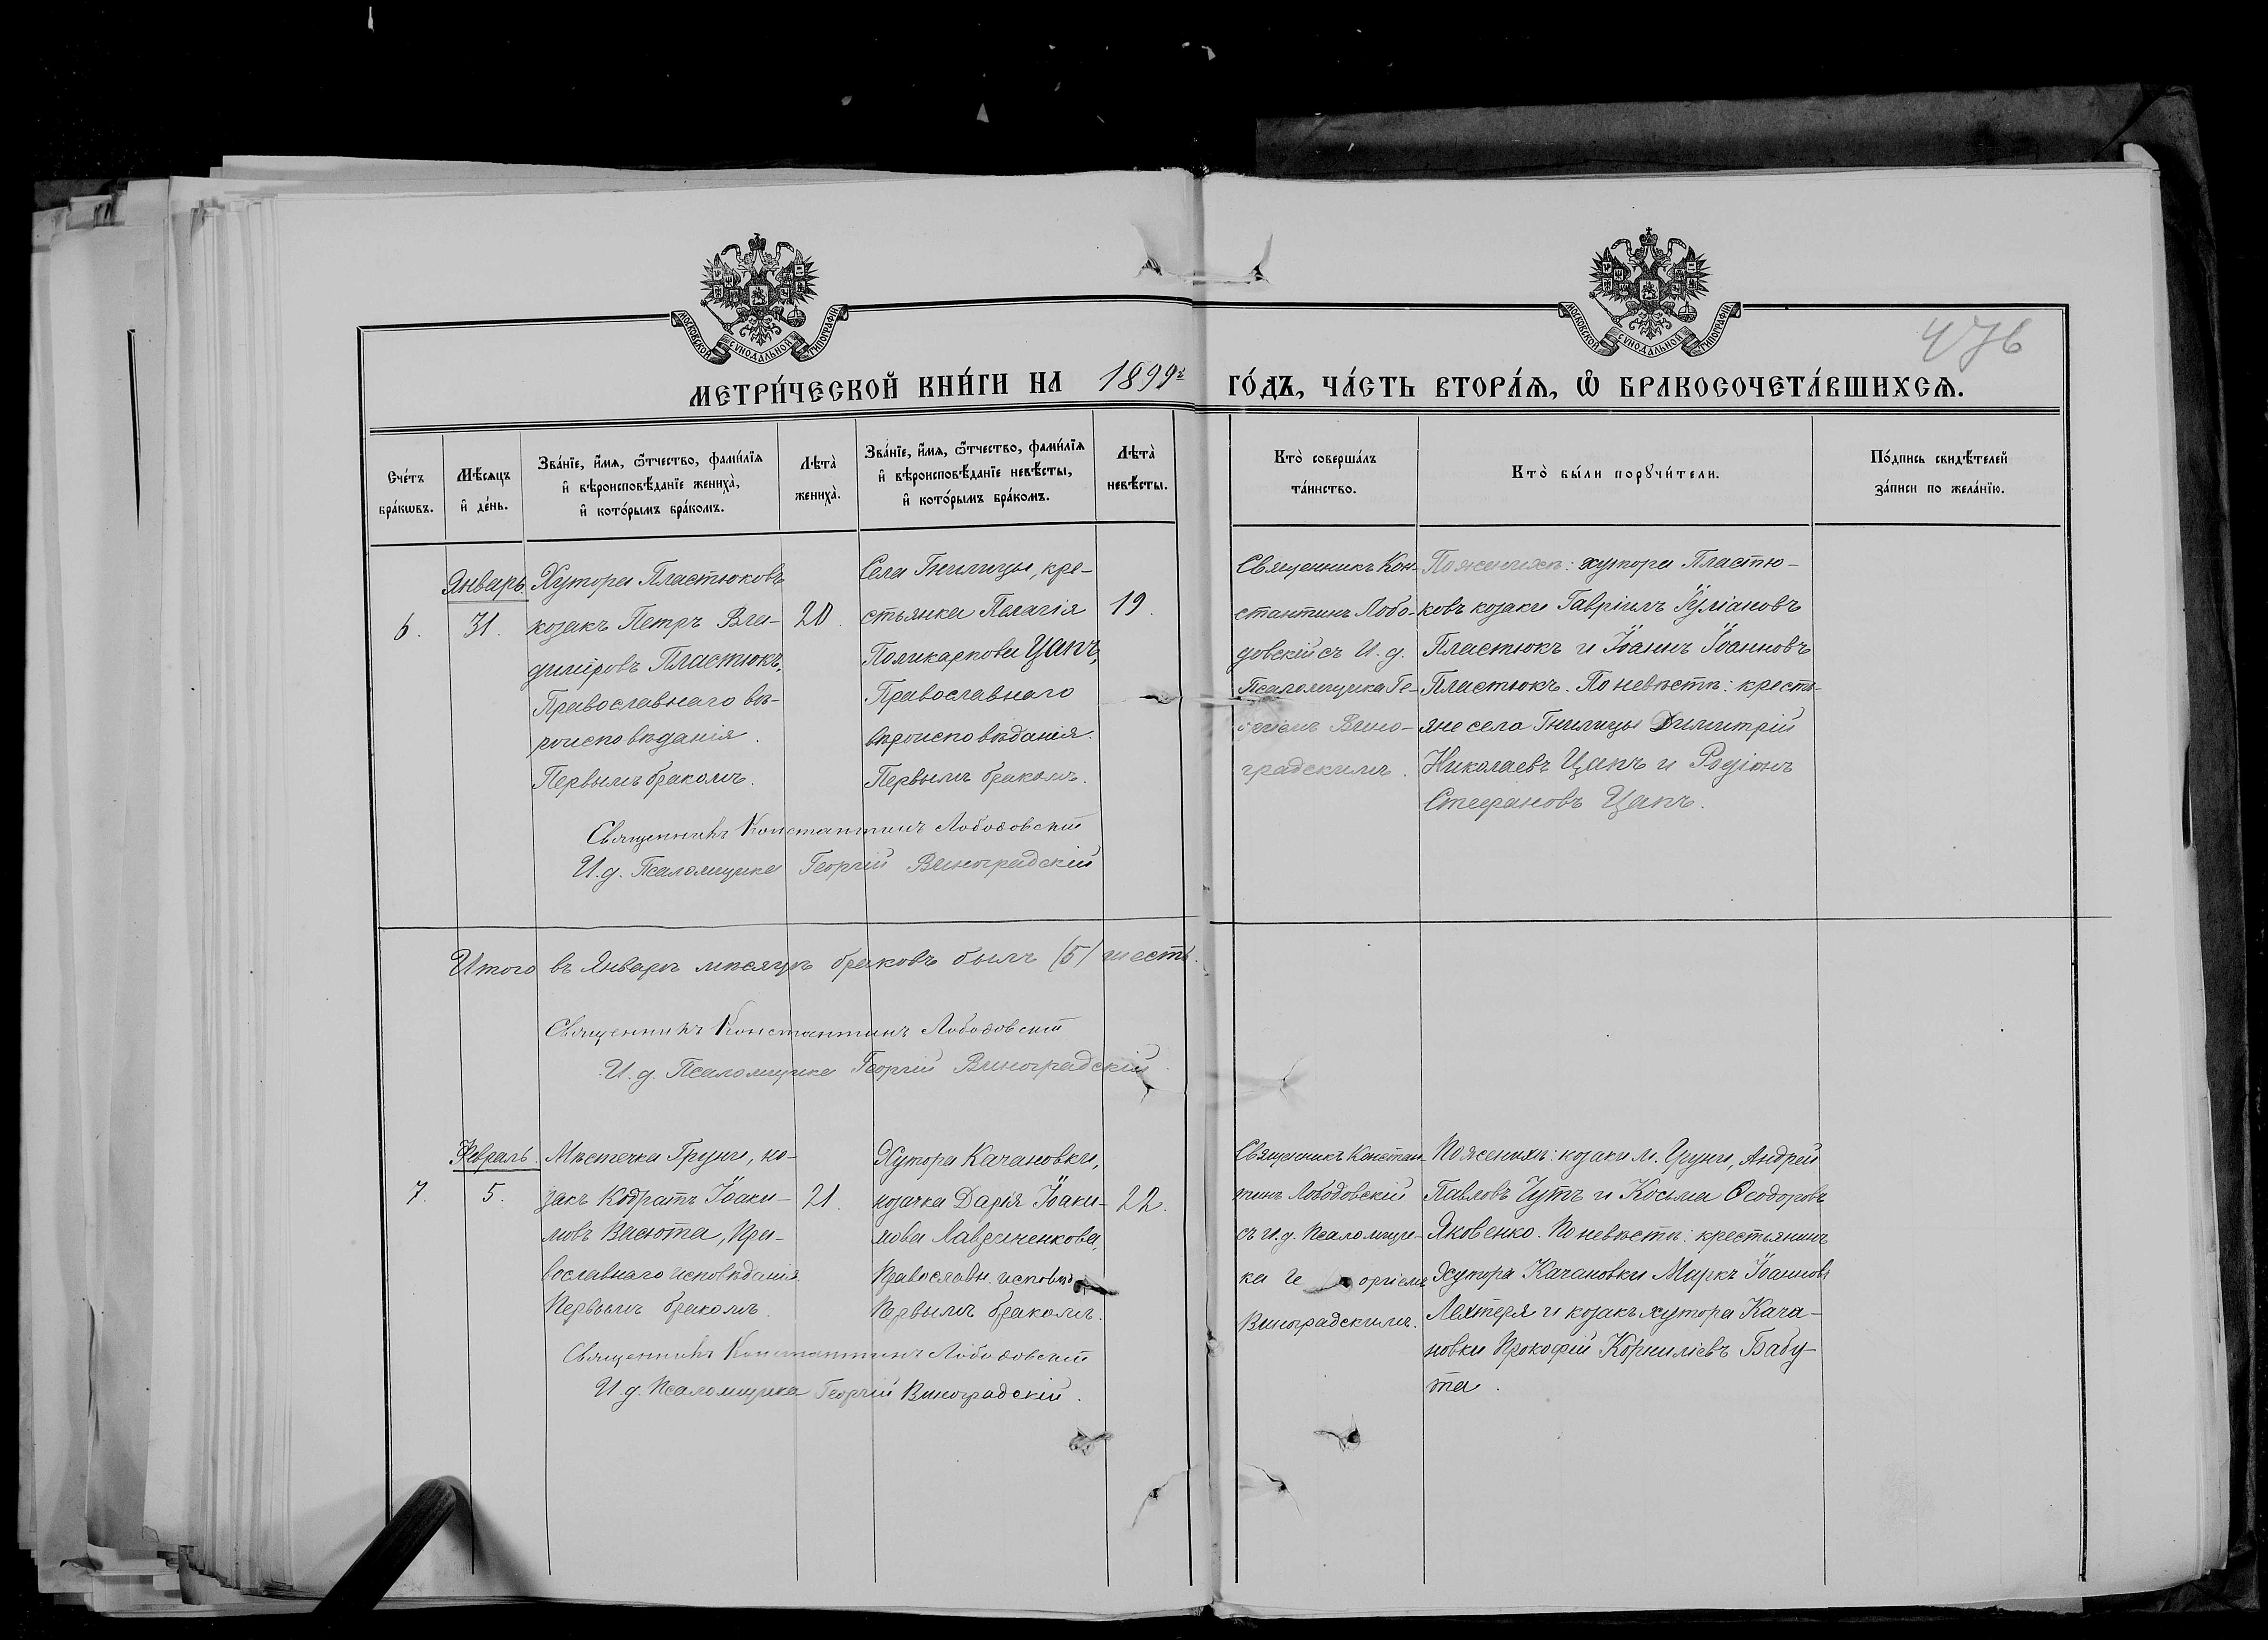 МОСКОВСКОЙ СѴНОДАЛЬНОЙ ТИПОГРАФІИ
МОСКОВСКОЙ СѴНОДАЛЬНОЙ ТИПОГРАФІИ
476
МЕТРИ́ЧЕСКОЙ КНИ́ГИ НА 1899г ГО́ДЪ, ЧА́СТЬ ВТОРА́Я, Ѡ҆ БРАКОСОЧЕТА́ВШИХСЯ.
Сче́тъ
бра́кѡвъ.
Мѣ́сяцъ
и҆ де́нь.
Зва́нїе, и҆́мя, ѻ҆́тчество, фами́лїя
и҆ вѣроисповѣ́данїе жениха̀,
и҆ кото́рымъ бра́комъ.
Лѣта̀
жениха̀.
Зва́нїе, и҆́мя, ѻ҆́тчество, фами́лїя
и҆ вѣроисповѣ́данїе невѣ́сты,
и҆ кото́рымъ бра́комъ.
Лѣта̀
невѣ́сты.
Кто̀ соверша́лъ
та́инство.
Кто̀ бы́ли порꙋчи́тели.
По́дпись свидѣ́телей
за́писи по жела́нїю.
6.
Январь.
31.
Хутора Пластюковъ
козакъ Петръ Вла-
диміровъ Пластюкъ,
Православнаго вѣ-
роисповѣданія.
Первымъ бракомъ.
20.
Села Гнилицы, кре-
стьянка Пелагія
Поликарпова Цапъ,
Православнаго
вѣроисповѣданія.
Первымъ бракомъ.
19.
Священникъ Кон-
стантинъ Лобо-
довскій съ И. д.
Псаломщика Ге-
оргіемъ Вино-
градскимъ.
По женихѣ: хутора Пластю-
ковъ козаки Гавріилъ Іуліановъ
Пластюкъ и Іоаннъ Іоанновъ
Пластюкъ. По невѣстѣ: кресть-
яне села Гнилицы Димитрій
Николаевъ Цапъ и Родіонъ
Стефановъ Цапъ.
Священникъ Константинъ Лободовскій
И. д. Псаломщика Георгій Виноградскій
Итого въ Январѣ мѣсяцѣ браковъ было (6) шесть.
Священникъ Константинъ Лободовскій
И. д. Псаломщика Георгій Виноградскій.
7.
Февраль.
5.
Мѣстечка Груни, ко-
закъ Кодратъ Іоаки-
мовъ Васюта, Пра-
вославнаго исповѣданія.
Первымъ бракомъ.
21.
Хутора Качановки,
козачка Дарія Іоаки-
мова Лавриченкова,
Православн. исповѣд
Первымъ бракомъ.
22.
Священникъ Констан-
тинъ Лободовскій
съ И. д. Псаломщи-
ка Ге оргіемъ
Виноградскимъ.
По женихѣ: козаки м. Груни, Андрей
Павловъ Чутъ и Косьма Ѳеодоровъ
Яковенко. По невѣстѣ: крестьянинъ
Хутора Качановки Маркъ Іоанновъ
Лехтеря и козакъ хутора Кача-
новки Прокофій Корниліевъ Бабу-
та.
Священникъ Константинъ Лободовскій
И. д. Псаломщика Георгій Виноградскій.